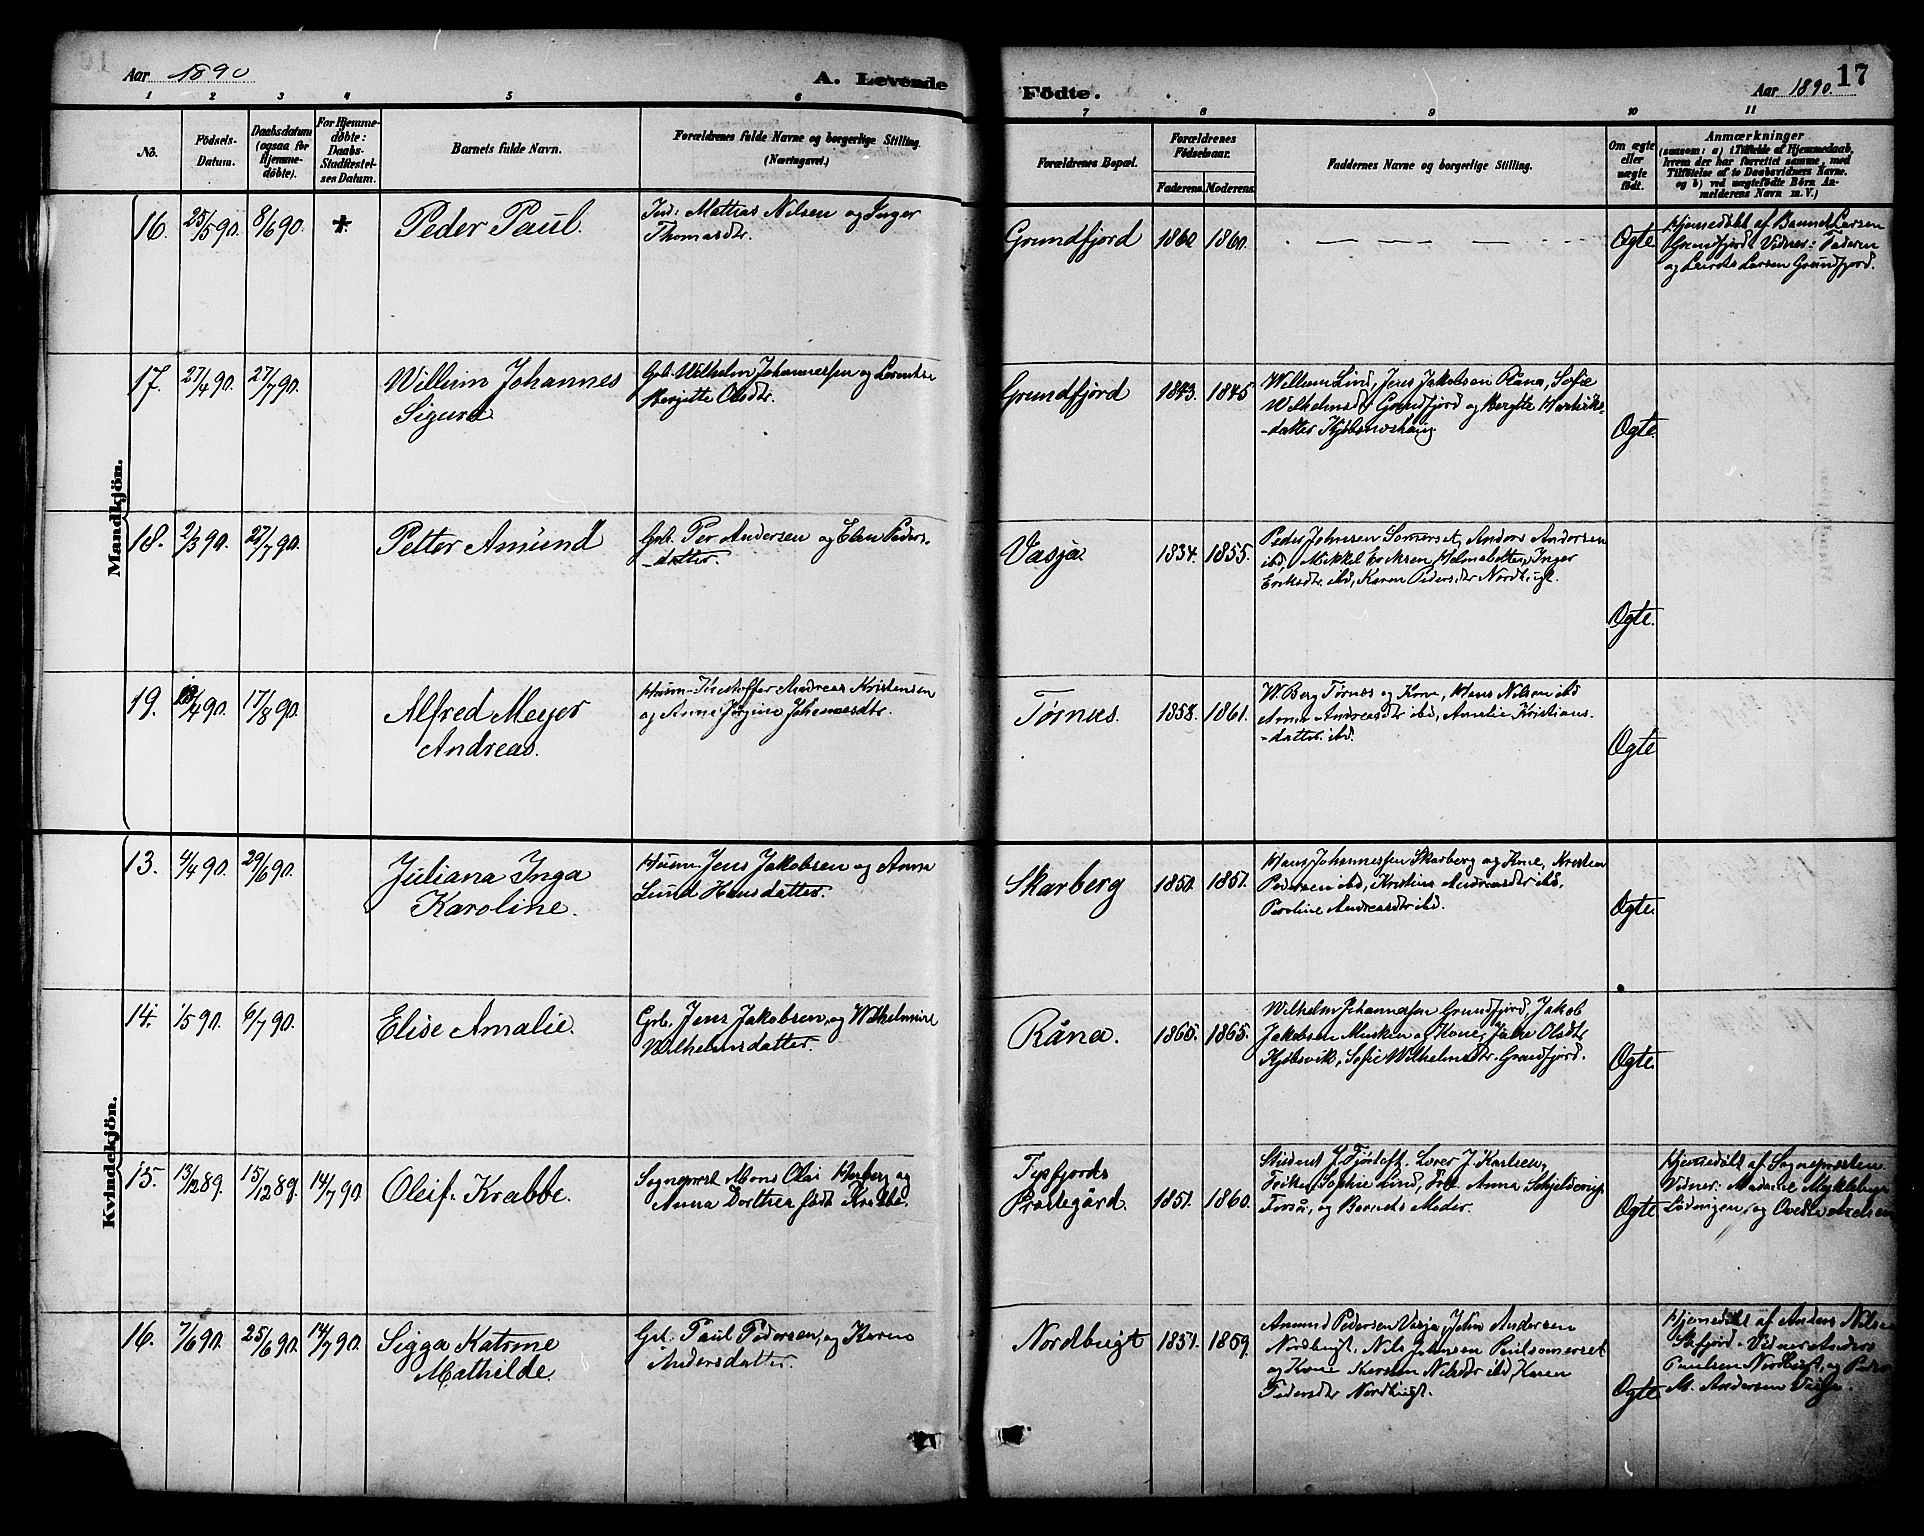 Aar 1890
A. Levende
Födte.
Aar 1890.
17
1 2 3 4 5 6 7 8 9 10 11
No.
Födsels-
Datum.
Daabsdatum
(ogsaa for
Hjemme-
döbte).
For Hjemme-
döbte:
Daabs-
Stadfæstel-
ses Datum.
Barnets fulde Navn.
Forældrenes fulde Navne og borgerlige Stilling.
(Næringsvei.)
Forældrenes Bopæl.
Forældrenes
Födselsaar.
Faderens. Moderens.
Faddernes Navne og borgerlige Stilling.
Om ægte
eller
uægte
födt.
Anmærkninger
(saasom: a) i Tilfælde af Hjemmedaab,
hvem der har forrettet samme, med
Tilföielse af to Daabsvidners Navne.
og b) ved uægtefödte Börn An-
melderens Navn m. V.)
Mandkjön.
16. 25/5 90. 8/6 90. +.
Peder Paul.
Ind: Mathias Nilsen og Inger
Thomasdtr.
Grundfjord 1860 1860.
Ægte
Hjemedöbt af Larsen
Grundfjord. Vidner: Faderen
og Larsen Grundfjord.
17. 27/4 90. 27/7 90.
Willum Johannes
Sigurd
Grb. Wilhelm Johannessen og Lorentse
Bergitte Olsdtr.
Grundfjord 1843. 1845
Willum Lind, Jens Jakobsen Råna, Sofie
Wilhelmsd. Grundfjord og Bergitte
-datter
Ægte.
18. 2/3 90. 27/7 90.
Petter Amund
Grb. Per Andersen og Elen Peders-
-datter.
Vasja 1834. 1855.
Peder Johnsen Somerset, Anders Andersen
ibd, Mikkel Eriksen Inger
Eriksdtr ibd, Karen Pedersdtr Nordbugt.
Ægte.
19. 13/4 90. 17/8 90.
Alfred Meyer
Andreas.
Husm. Kristoffer Andreas Kristensen
og Anne Jörgine Johannesdtr.
Tørnes. 1858. 1861.
W. Berg Tørnes og Kone, Hans Nilsen ibd
Anna Andreasdtr ibd, Amalie Kristians-
-datter ibd.
Ægte
Kvindekjön.
13. 4/4 90. 29/6 90.
Juliana Inga
Karoline.
Husm. Jens Jakobsen og Anna
Lund Hansdatter.
Skarberg 1850. 1851.
Hans Johannessen Skarberg og Kone, Kristian
Pedersen ibd, Kristine Andreasdtr ibd,
Peroline Andreasdtr ibd.
Ægte.
14. 1/5 90. 6/7 90.
Elise Amalie.
Grb. Jens Jakobsen, og Wilhelmine
Wilhelmsdatter.
Råna. 1860. 1865.
Wilhelm Johannesen Grundfjord, Jakob
Jakobsen Musken og Kone, Olsdtr
Kjöbsvik, Sofie Wilhelmsdtr. Grundfjord.
Ægte.
15. 13/12 89. 15/12 89. 14/7 90.
Oleif Krabbe.
Sogneprest Mons Olai og
Anna Dorthea födt Krabbe.
Tysfjords
Præstegård. 1851. 1860.
Student J. Tjöstoft. Lærer J. Karlsen,
Fröken Sophie Lind, Frk. Anna Schjelderup
Forså, og Barnets Moder.
Ægte
Hjemedöbt af Sognepresten
Vidner: Myklebust
Lödingen, og
16. 7/6 90. 25/6 90. 14/7 90.
Sigga Katrine
Mathilde.
Grb. Paul Pedersen, og Karen
Andersdatter.
Nordbugt 1851. 1859.
Amund Pedersen Vasja, John Andersen
Nordbugt. Nils Johnsen
og Kone Nilsdtr ibd, Karen
Pedersdtr Nordbugt.
Ægte
Hjemedöbt af Anders Nilsen
Vidner: Anders
Paulsen Nordbugt, og Peder
M. Andersen